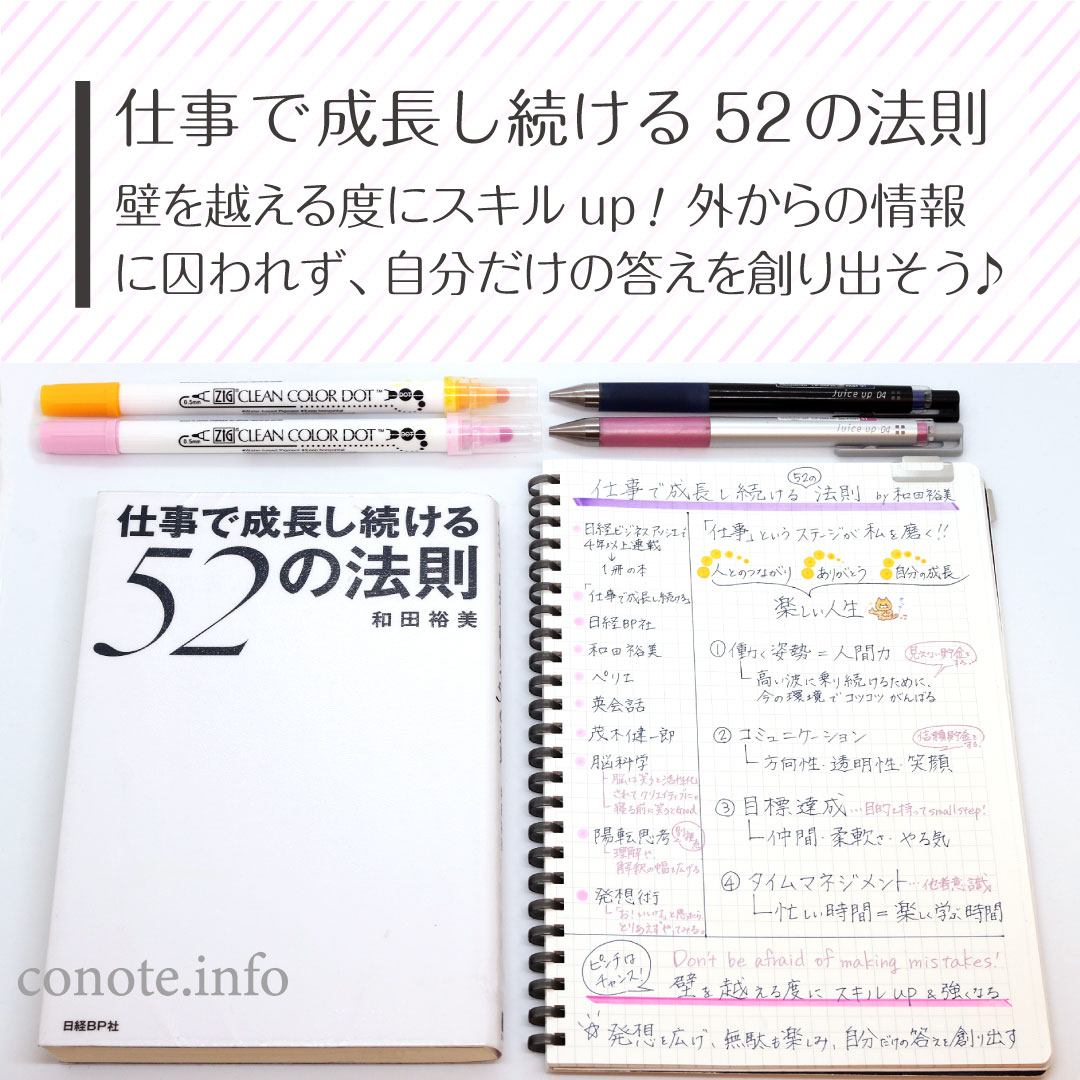 仕事で成長し続ける52の法則
壁を越える度にスキルup！外からの情報
に囚われず、自分だけの答えを創り出そう♪
ZIG CLEAN COLOR DOT™ DOT
0.5mm
Juice up 04
ZIG CLEAN COLOR DOT™ DOT
0.5mm
Juice up 04
仕事で成長し続ける
52の法則
和田裕美
日経BP社
conote.info
仕事で成長し続ける 52の 法則 by 和田裕美
日経ビジネスアソシエで
4年以上連載
↓
1冊の本
「仕事で成長し続ける」
日経BP社
和田裕美
ペリエ
英会話
茂木健一郎
脳科学
脳は笑うと活性化
されてクリエイティブに。
寝る前に笑うとGood
陽転思考
理解や、
解釈の幅を広げる
発想術
「お！いいな」と思ったら
とりあえずやってみる。
「仕事」というステージが私を磨く!!
人とのつながり ありがとう 自分の成長
楽しい人生
①働く姿勢＝人間力 見えない貯金をする。
高い波に乗り続けるために、
今の環境でコツコツがんばる
②コミュニケーション 信頼貯金をする。
方向性・透明性・笑顔
③目標達成…目的を持ってsmall step!
仲間・柔軟さ・やる気
④タイムマネジメント…他者意識
忙しい時間＝楽しく学ぶ時間
ピンチは
チャンス!
Don't be afraid of making mistakes!
壁を越える度にスキルup＆強くなる
☆発想を広げ、無駄も楽しみ、自分だけの答えを創り出す